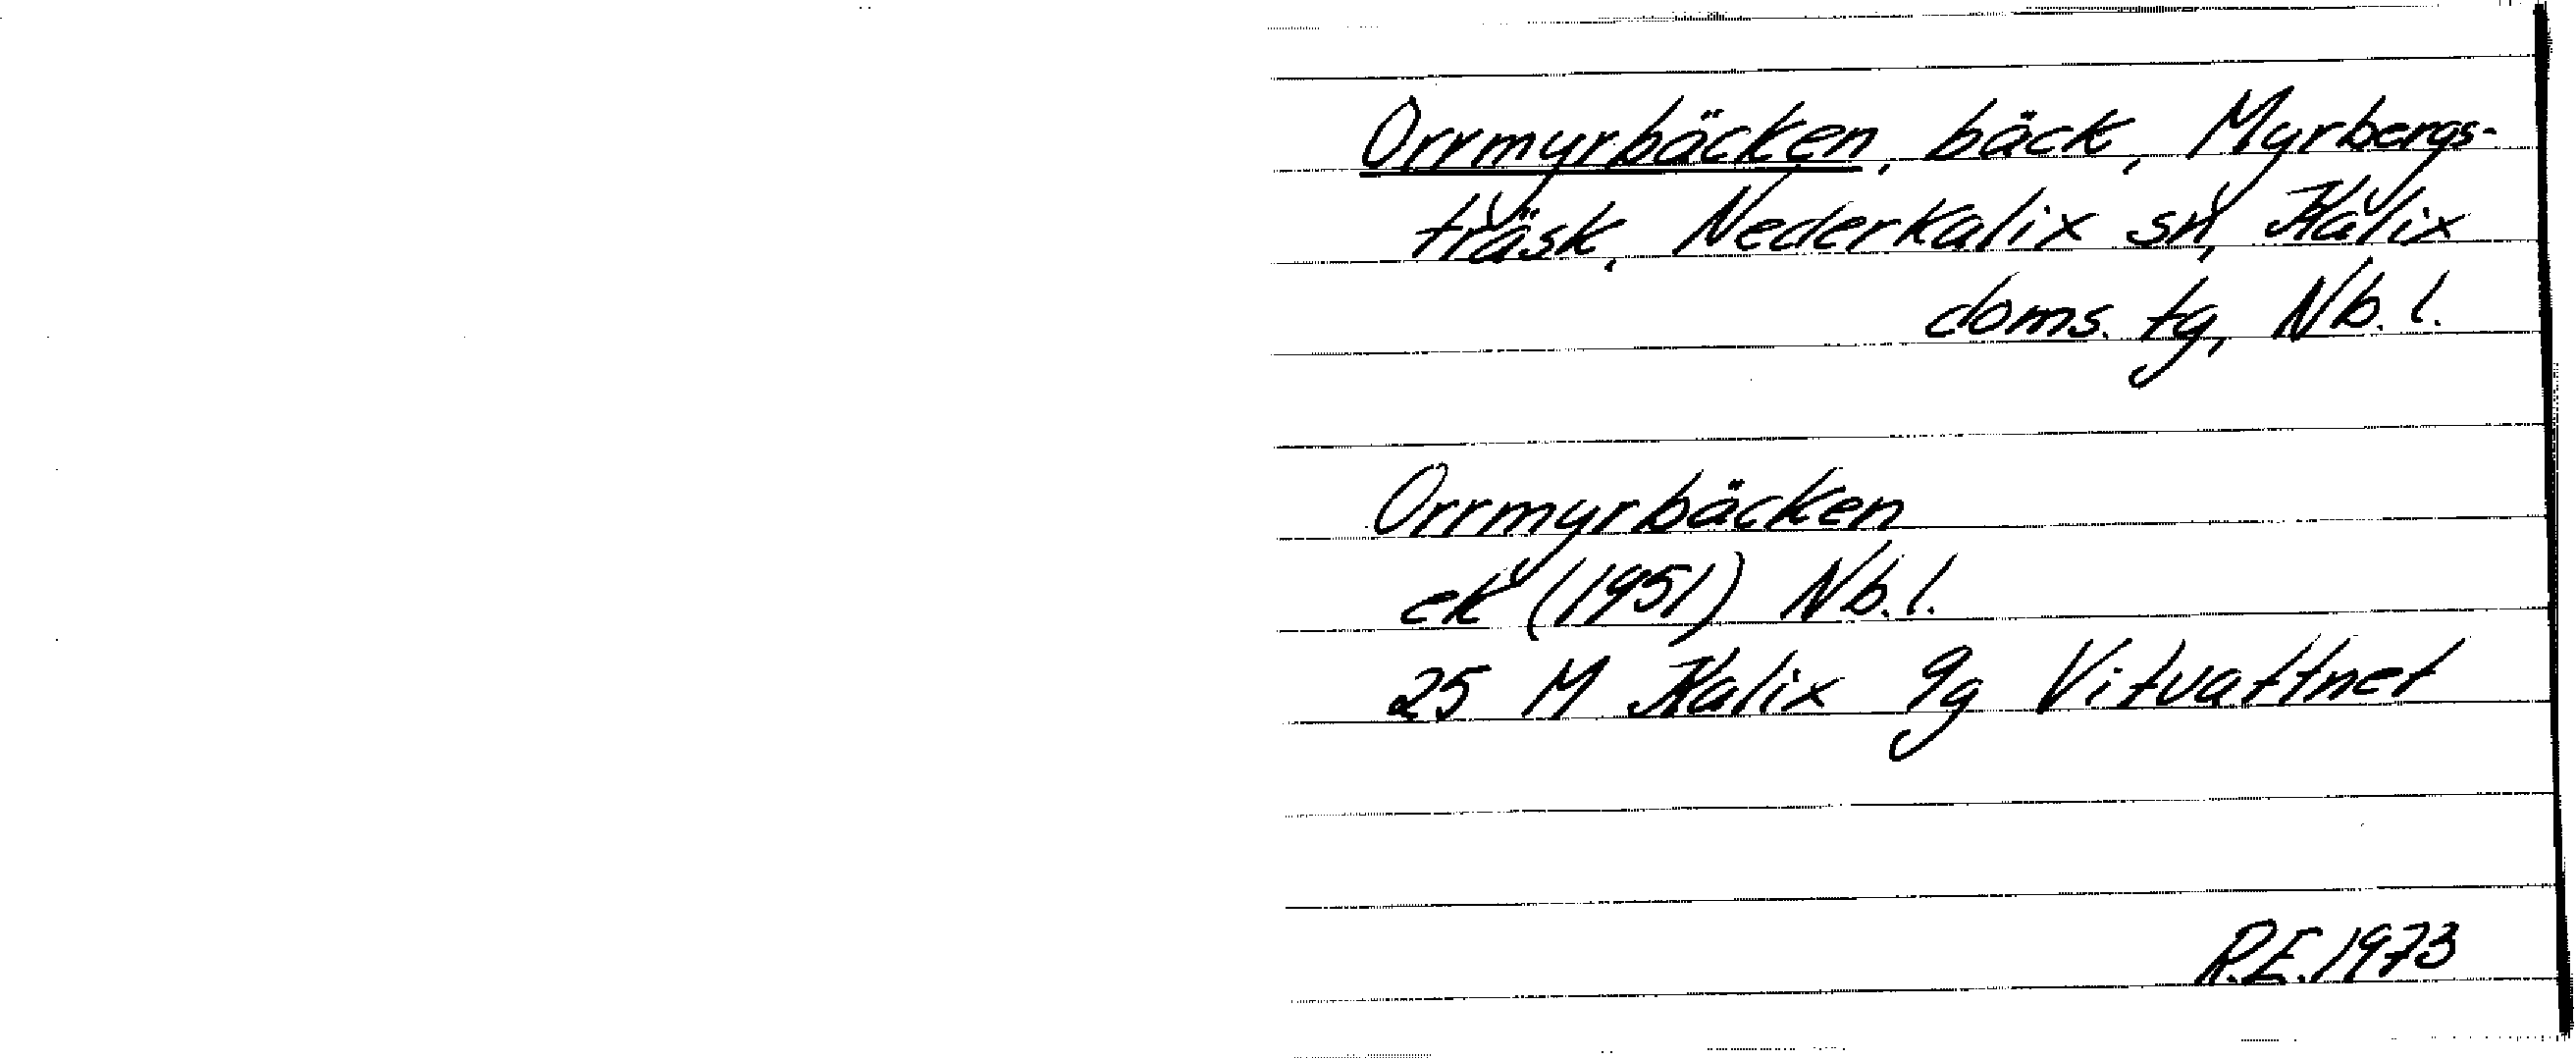 Orrmyrbäcken, bäck, Myrbergs-
träsk, Nederkalix sn, Kalix
doms. tg, Nb. l.
Orrmyrbäcken
ek (1951) Nb. l.
25 M Kalix 9g Vitvattnet
R.E. 1973